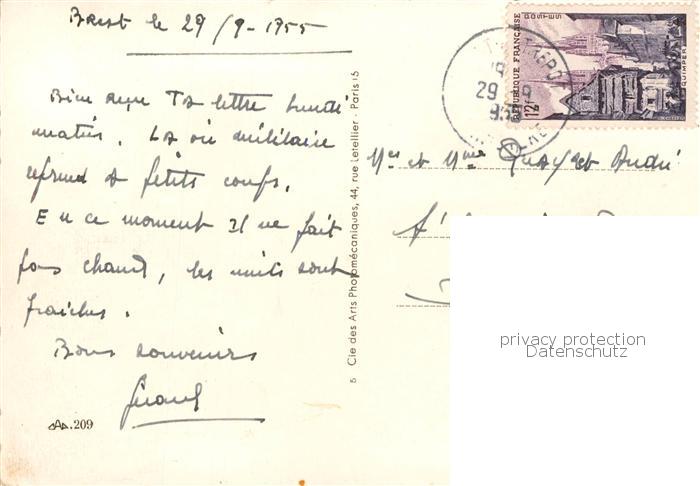 Brest le 29/9-1955
Bien reçu Ta lettre Lundi
matin. La vie militaire
reprend à petits coups.
En ce moment Il ne fait
pas chaud, les nuits sont
fraiches.
Bons souvenirs
209
5 Cie des Arts Photomécaniques, 44, rue Letellier - Paris 15
POSTES
REPUBLIQUE FRANÇAISE
QUIMPER
12f
29
et Mme André
privacy protection
Datenschutz